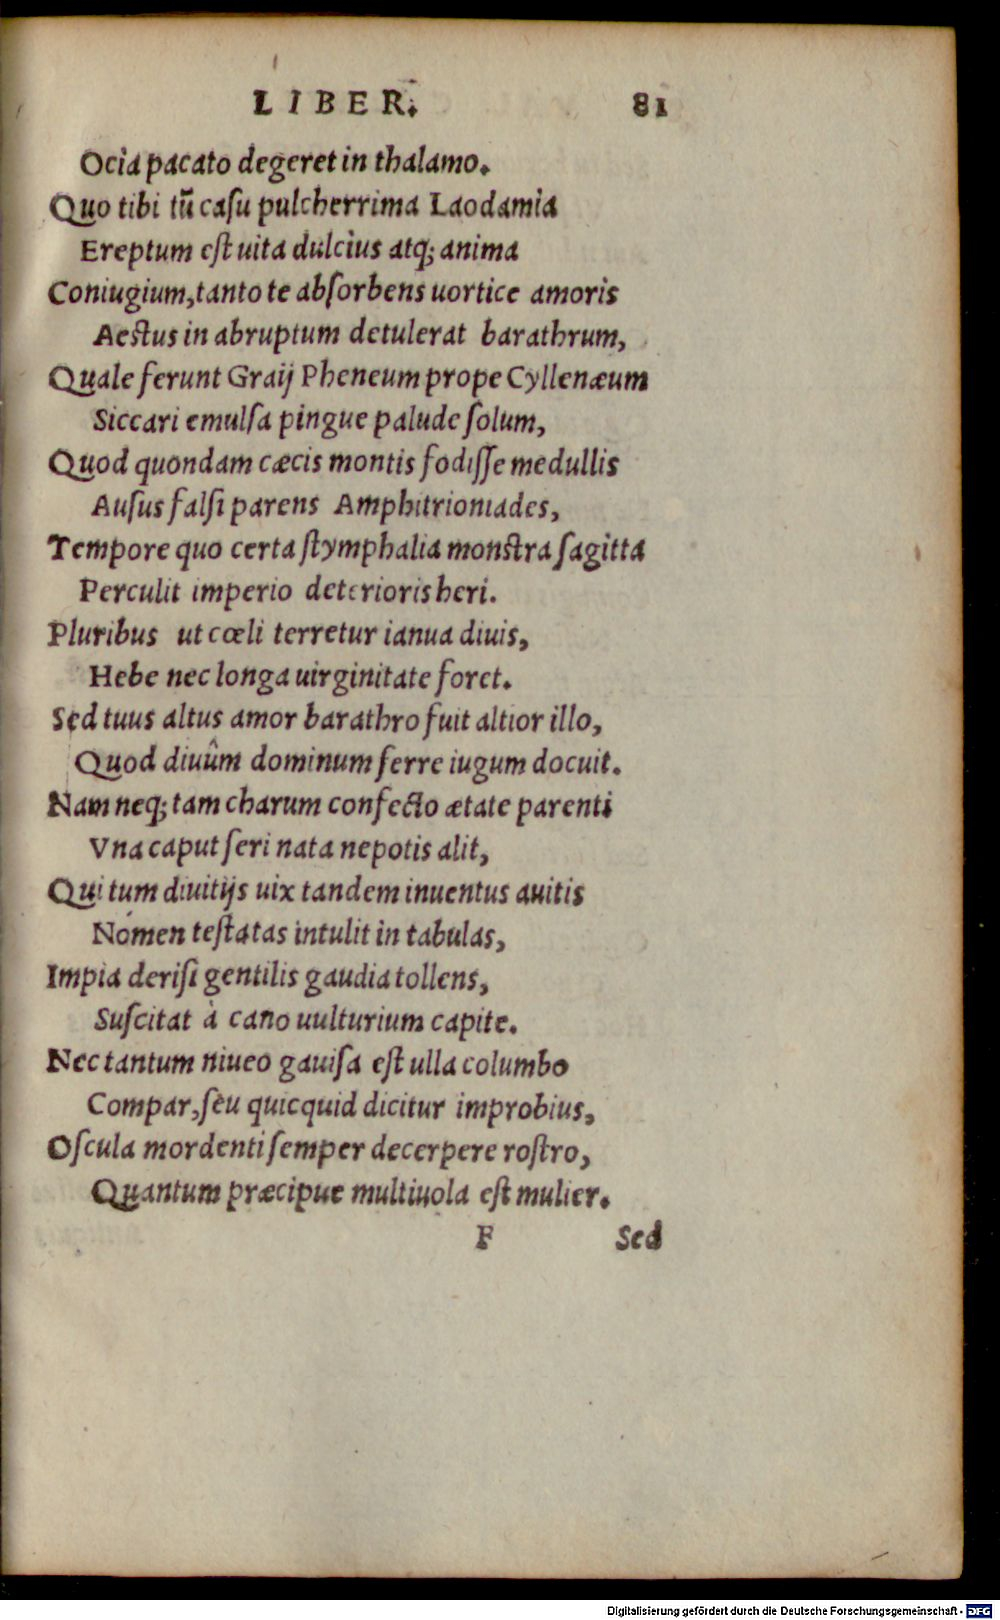 LIBER. 81
Ocia pacato degeret in thalamo.
Quo tibi tũ casu pulcherrima Laodamia
Ereptum est uita dulcius atq; anima
Coniugium, tanto te absorbens uortice amoris
Aestus in abruptum detulerat barathrum,
Quale ferunt Graij Pheneum prope Cyllenæum
Siccari emulsa pingue palude solum,
Quod quondam cæcis montis fodisse medullis
Ausus falsi parens Amphitrioniades,
Tempore quo certa stymphalia monstra sagitta
Perculit imperio deterioris heri.
Pluribus ut cœli terretur ianua diuis,
Hebe nec longa uirginitate foret.
Sed tuus altus amor barathro fuit altior illo,
Quod diuûm dominum ferre iugum docuit.
Nam neq; tam charum confecto ætate parenti
Vna caput seri nata nepotis alit,
Qui tum diuitijs uix tandem inuentus auitis
Nomen testatas intulit in tabulas,
Impia derisi gentilis gaudia tollens,
Suscitat à cano uulturium capite.
Nec tantum niueo gauisa est ulla columbo
Compar, seu quicquid dicitur improbius,
Oscula mordenti semper decerpere rostro,
Quantum præcipue multiuola est mulier.
F Sed
Digitalisierung gefördert durch die Deutsche Forschungsgemeinschaft - DFG